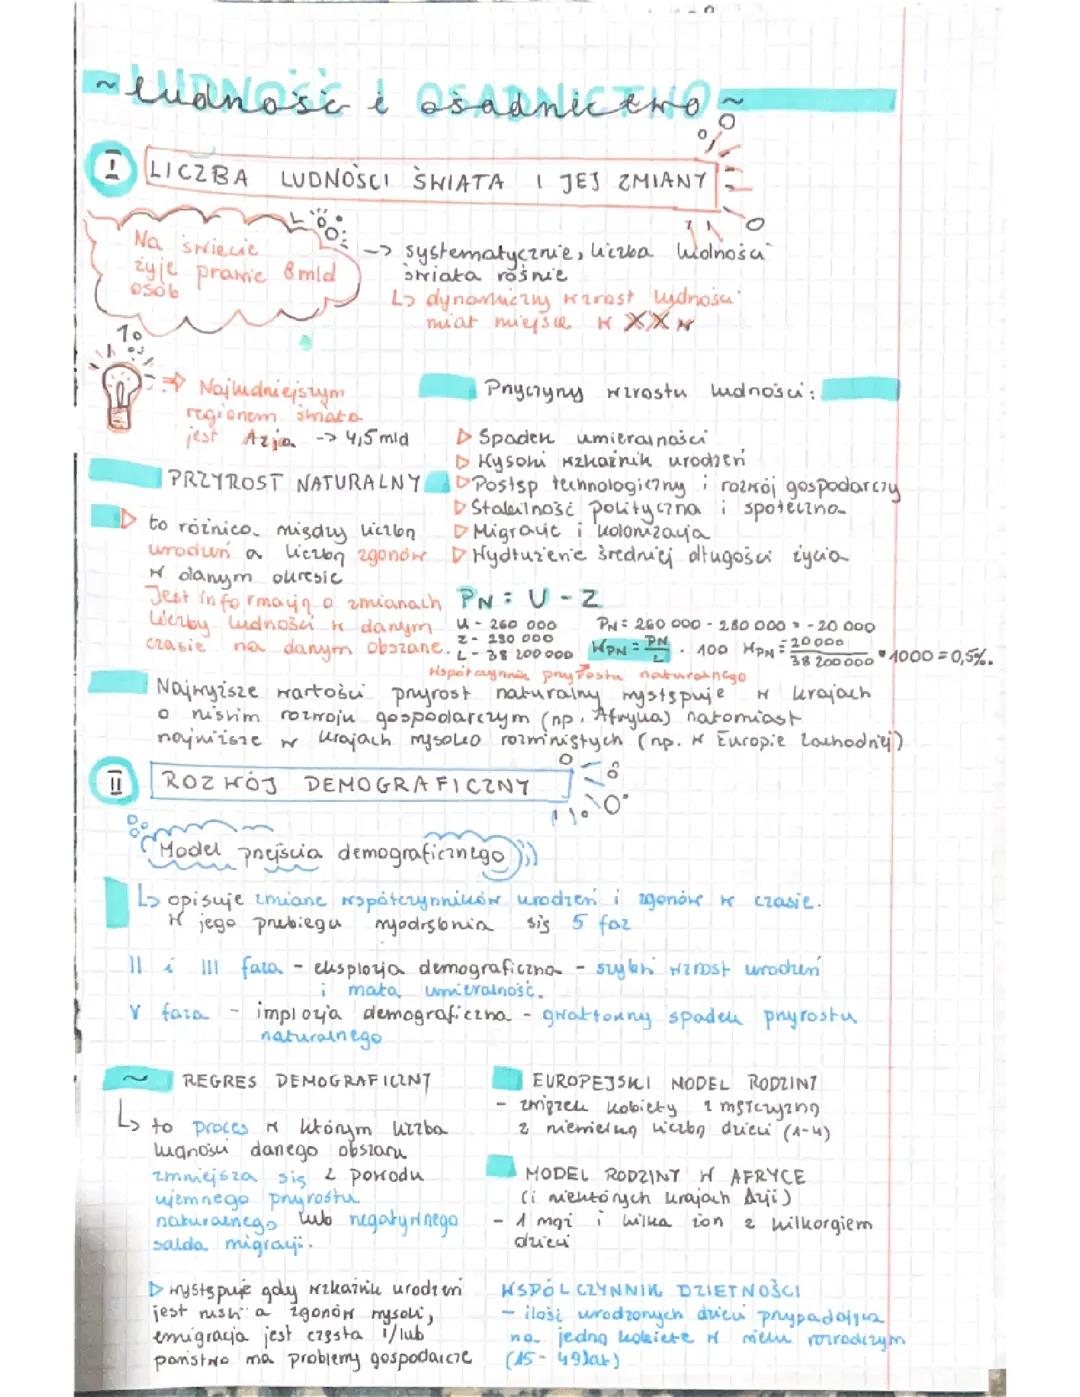 ~ludność i osadnictwo~
LUDNOŚĆ I OSADNICTWO
I LICZBA LUDNOŚCI ŚWIATA I JEJ ZMIANY
Na świecie
żyje prawie 8 mld
osób
-> systematycznie, liczba ludności
świata rośnie
↳ dynamiczny wzrost ludności
miał miejsce w XX w
=> Najludniejszym
regionem świata
jest Azja -> 4,5 mld
Przyczyny wzrostu ludności:
▷ Spadek umieralności
▷ Wysoki wskaźnik urodzeń
▷ Postęp technologiczny i rozwój gospodarczy
▷ Stabilność polityczna i społeczna
▷ Migracje i kolonizacja
▷ Wydłużenie średniej długości życia
PRZYROST NATURALNY
▷ to różnica między liczbą
urodzeń a liczbą zgonów
w danym okresie
Jest informacją o zmianach
liczby ludności w danym
czasie na danym obszarze.
PN = U - Z
U - 260 000
Z - 280 000
L - 38 200 000
PN = 260 000 - 280 000 = -20 000
WPN = PN/L · 100 WPN = -20 000/38 200 000 * 1000 = 0,5%.
Współczynnik przyrostu naturalnego
Najwyższe wartości przyrost naturalny występuje w krajach
o niskim rozwoju gospodarczym (np. Afryka) natomiast
najniższe w krajach wysoko rozwiniętych (np. w Europie Zachodniej)
II ROZWÓJ DEMOGRAFICZNY
Model przejścia demograficznego
↳ opisuje zmianę współczynników urodzeń i zgonów w czasie.
W jego przebiegu wyodrębnia się 5 faz
II i III faza - eksplozja demograficzna - szybki wzrost urodzeń
i mała umieralność.
V faza - implozja demograficzna - gwałtowny spadek przyrostu
naturalnego
~ REGRES DEMOGRAFICZNY
↳ to proces w którym liczba
ludności danego obszaru
zmniejsza się z powodu
ujemnego przyrostu
naturalnego lub negatywnego
salda migracji.
▷ występuje gdy wskaźnik urodzeń
jest niski a zgonów wysoki,
emigracja jest częsta i/lub
państwo ma problemy gospodarcze
EUROPEJSKI MODEL RODZINY
- związek kobiety z mężczyzną
z niewielką liczbą dzieci (1-4)
MODEL RODZINY W AFRYCE
(i niektórych krajach Azji)
- 1 mąż i kilka żon z kilkorgiem
dzieci
WSPÓŁCZYNNIK DZIETNOŚCI
- ilość urodzonych dzieci przypadająca
na jedną kobietę w wieku rozrodczym
(15 - 49 lat)